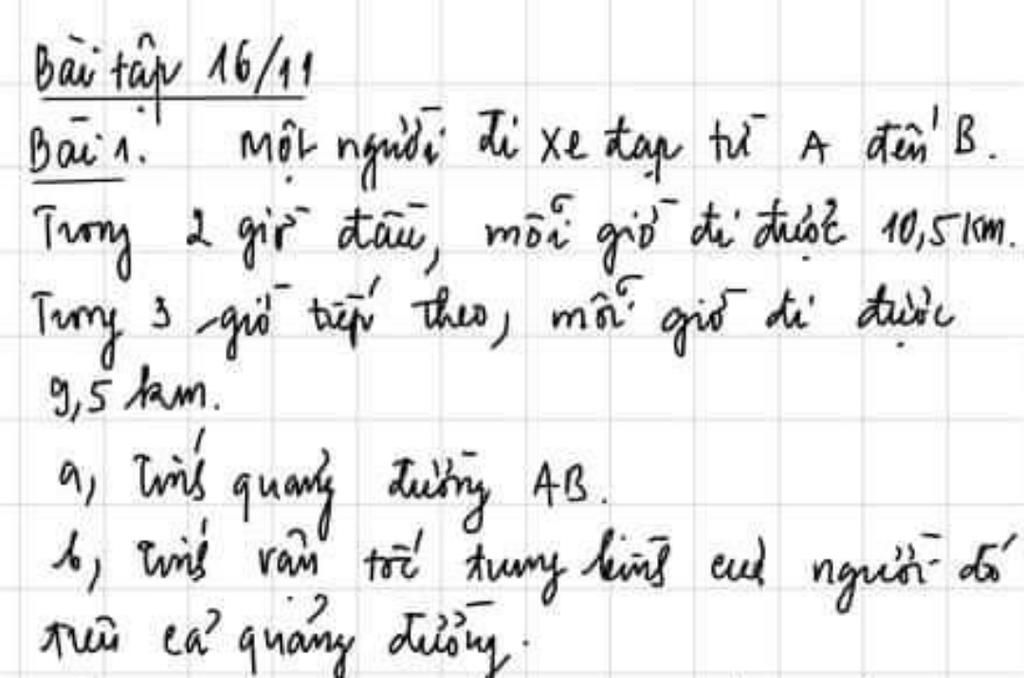 Bài tập 16/11
Bài 1. Một người đi xe đạp từ A đến B.
Trong 2 giờ đầu, mỗi giờ đi được 10,5 km.
Trong 3 giờ tiếp theo, mỗi giờ đi được
9,5 km.
a, Tính quãng đường AB.
b, Tính vận tốc trung bình của người đó
trên cả quãng đường.